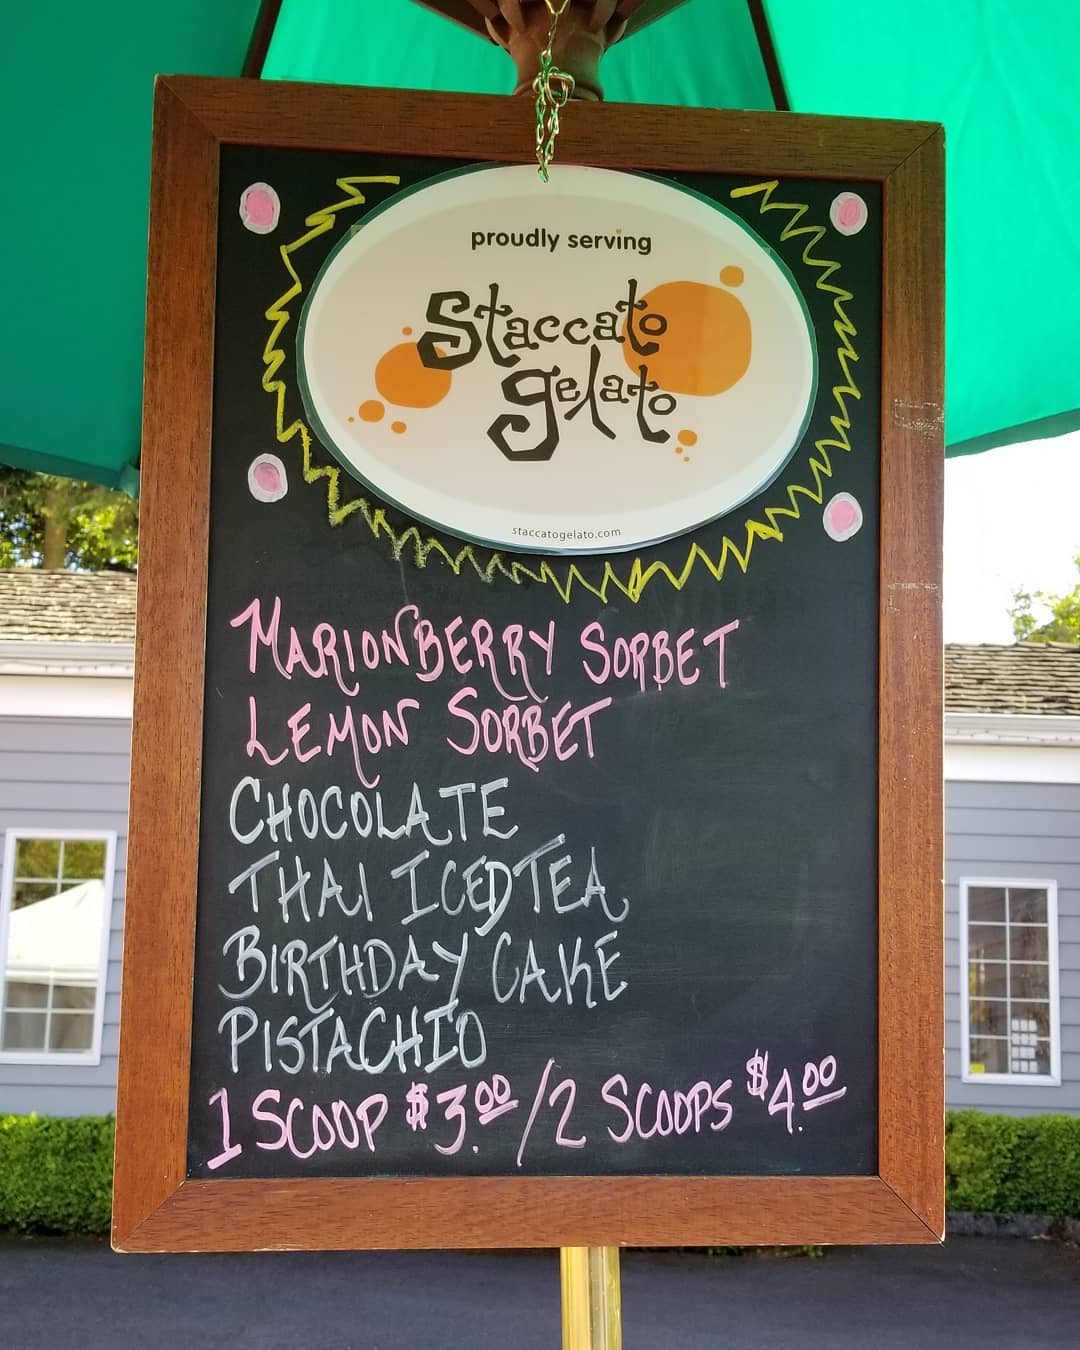 proudly serving
Staccato
gelato
staccatogelato.com
MARIONBERRY SORBET
LEMON SORBET
CHOCOLATE
THAI ICED TEA
BIRTHDAY CAKE
PISTACHIO
1 SCOOP $3.00 / 2 SCOOPS $4.00